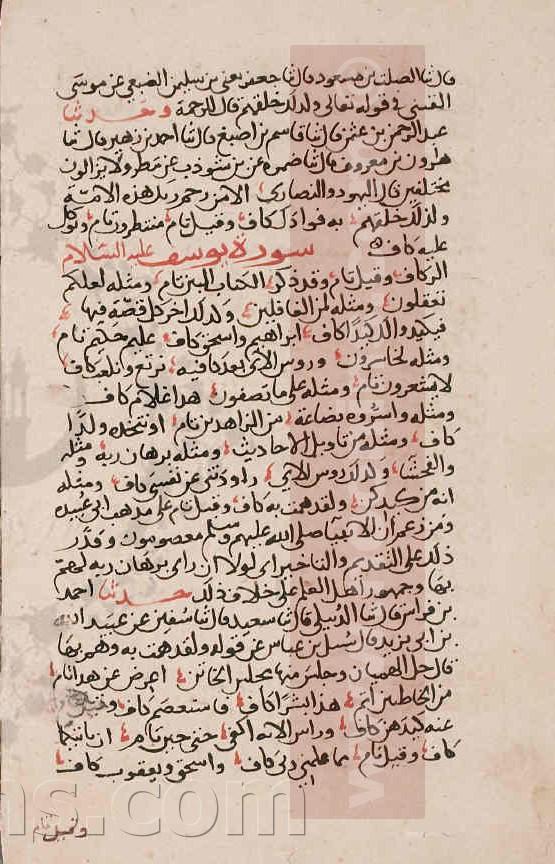 قال نا الصلت بن مسعود قال نا جعفر يعنى بن سليمن الضبعي عن موسى
القسي في قوله تعالى ولذلك خلقهم قال للرحمة وحدثنا
عبد الرحمن بن عثمن قال نا قاسم بن اصبغ قال نا احمد بن زهير قال نا
هارون بن معروف قال نا ضمرة عن بن شوذب عن مطر ولا يزالون
مختلفين قال اليهود والنصارى الا من رحم ربك هذه الامة
ولذلك خلقهم به فوادك كاف وقيل تام منتظرون تام وتوكل
عليه كاف
سورة يوسف عليه السلام
الر كاف وقيل تام وقد ذكر الكتاب المبين تام ومثله لعلكم
تعقلون ومثله لمن الغافلين وكذلك اخر كل قصة فيها
فيكيدوا لك كيدا كاف ابراهيم واسحق كاف عليم حكيم تام
ومثله لخاسرون وروس الآي بعد كافية يرتع ويلعب كاف
لا يشعرون تام ومثله على ما تصفون هذا غلام كاف
ومثله واسروه بضاعة من الزاهدين تام او نتخذه ولدا
كاف ومثله من تاويل الاحاديث ومثله برهان ربه ومثله
والفحشا وكذلك روس الآي راودتني عن نفسي كاف ومثله
انه من كيدكن ولقد همت به كاف وقيل تام على مذهب ابي عبيدة
ومن زعم ان الانبيا صلى الله عليهم وسلم معصومون وقدر
ذلك على التقديم والتاخير اي لولا ان راى برهان ربه لهم
بها وجمهور اهل العلم على خلاف ذلك حدثنا احمد
بن فراس قال نا الديبلي قال نا سعيد قال نا سفين عن عبيد الله
بن ابي يزيد قال سئل بن عباس عن قوله ولقد همت به وهم بها
قال حل الهميان وجلس منها مجلس الخاتن اعرض عن هذا تام
من الخاطئين اتم هذا بشرا كاف فاستعصم كاف
عنه كيدهن كاف وراس الآية اكفى حتى حين تام ان ياتيكما
كاف وقيل تام مما علمني ربي كاف واسحق ويعقوب كاف
وقيل تام
ns.com